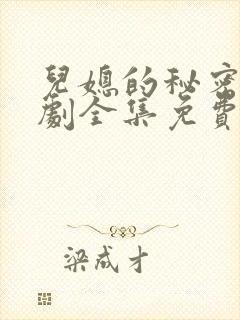 兒媳的秘密
劇全集免費
梁成才